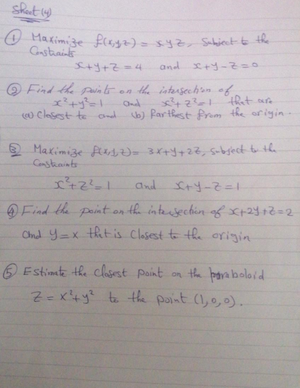 Sheet (4)
① Maximize f(x,y,z) = xyz, Subject to the
Constraints
x+y+z=4 and x+y-z=0
② Find the points on the intersection of
x²+y²=1 and x²+z²=1 that are
(a) Closest to and (b) Farthest from the origin.
③ Maximize f(x,y,z) = 3x+y+2z, subject to the
Constraints
x²+z²=1 and x+y-z=1
④ Find the point on the intersection of x+2y+z=2
and y=x that is Closest to the origin
⑤ Estimate the Closest point on the paraboloid
z=x²+y² to the point (1,0,0).